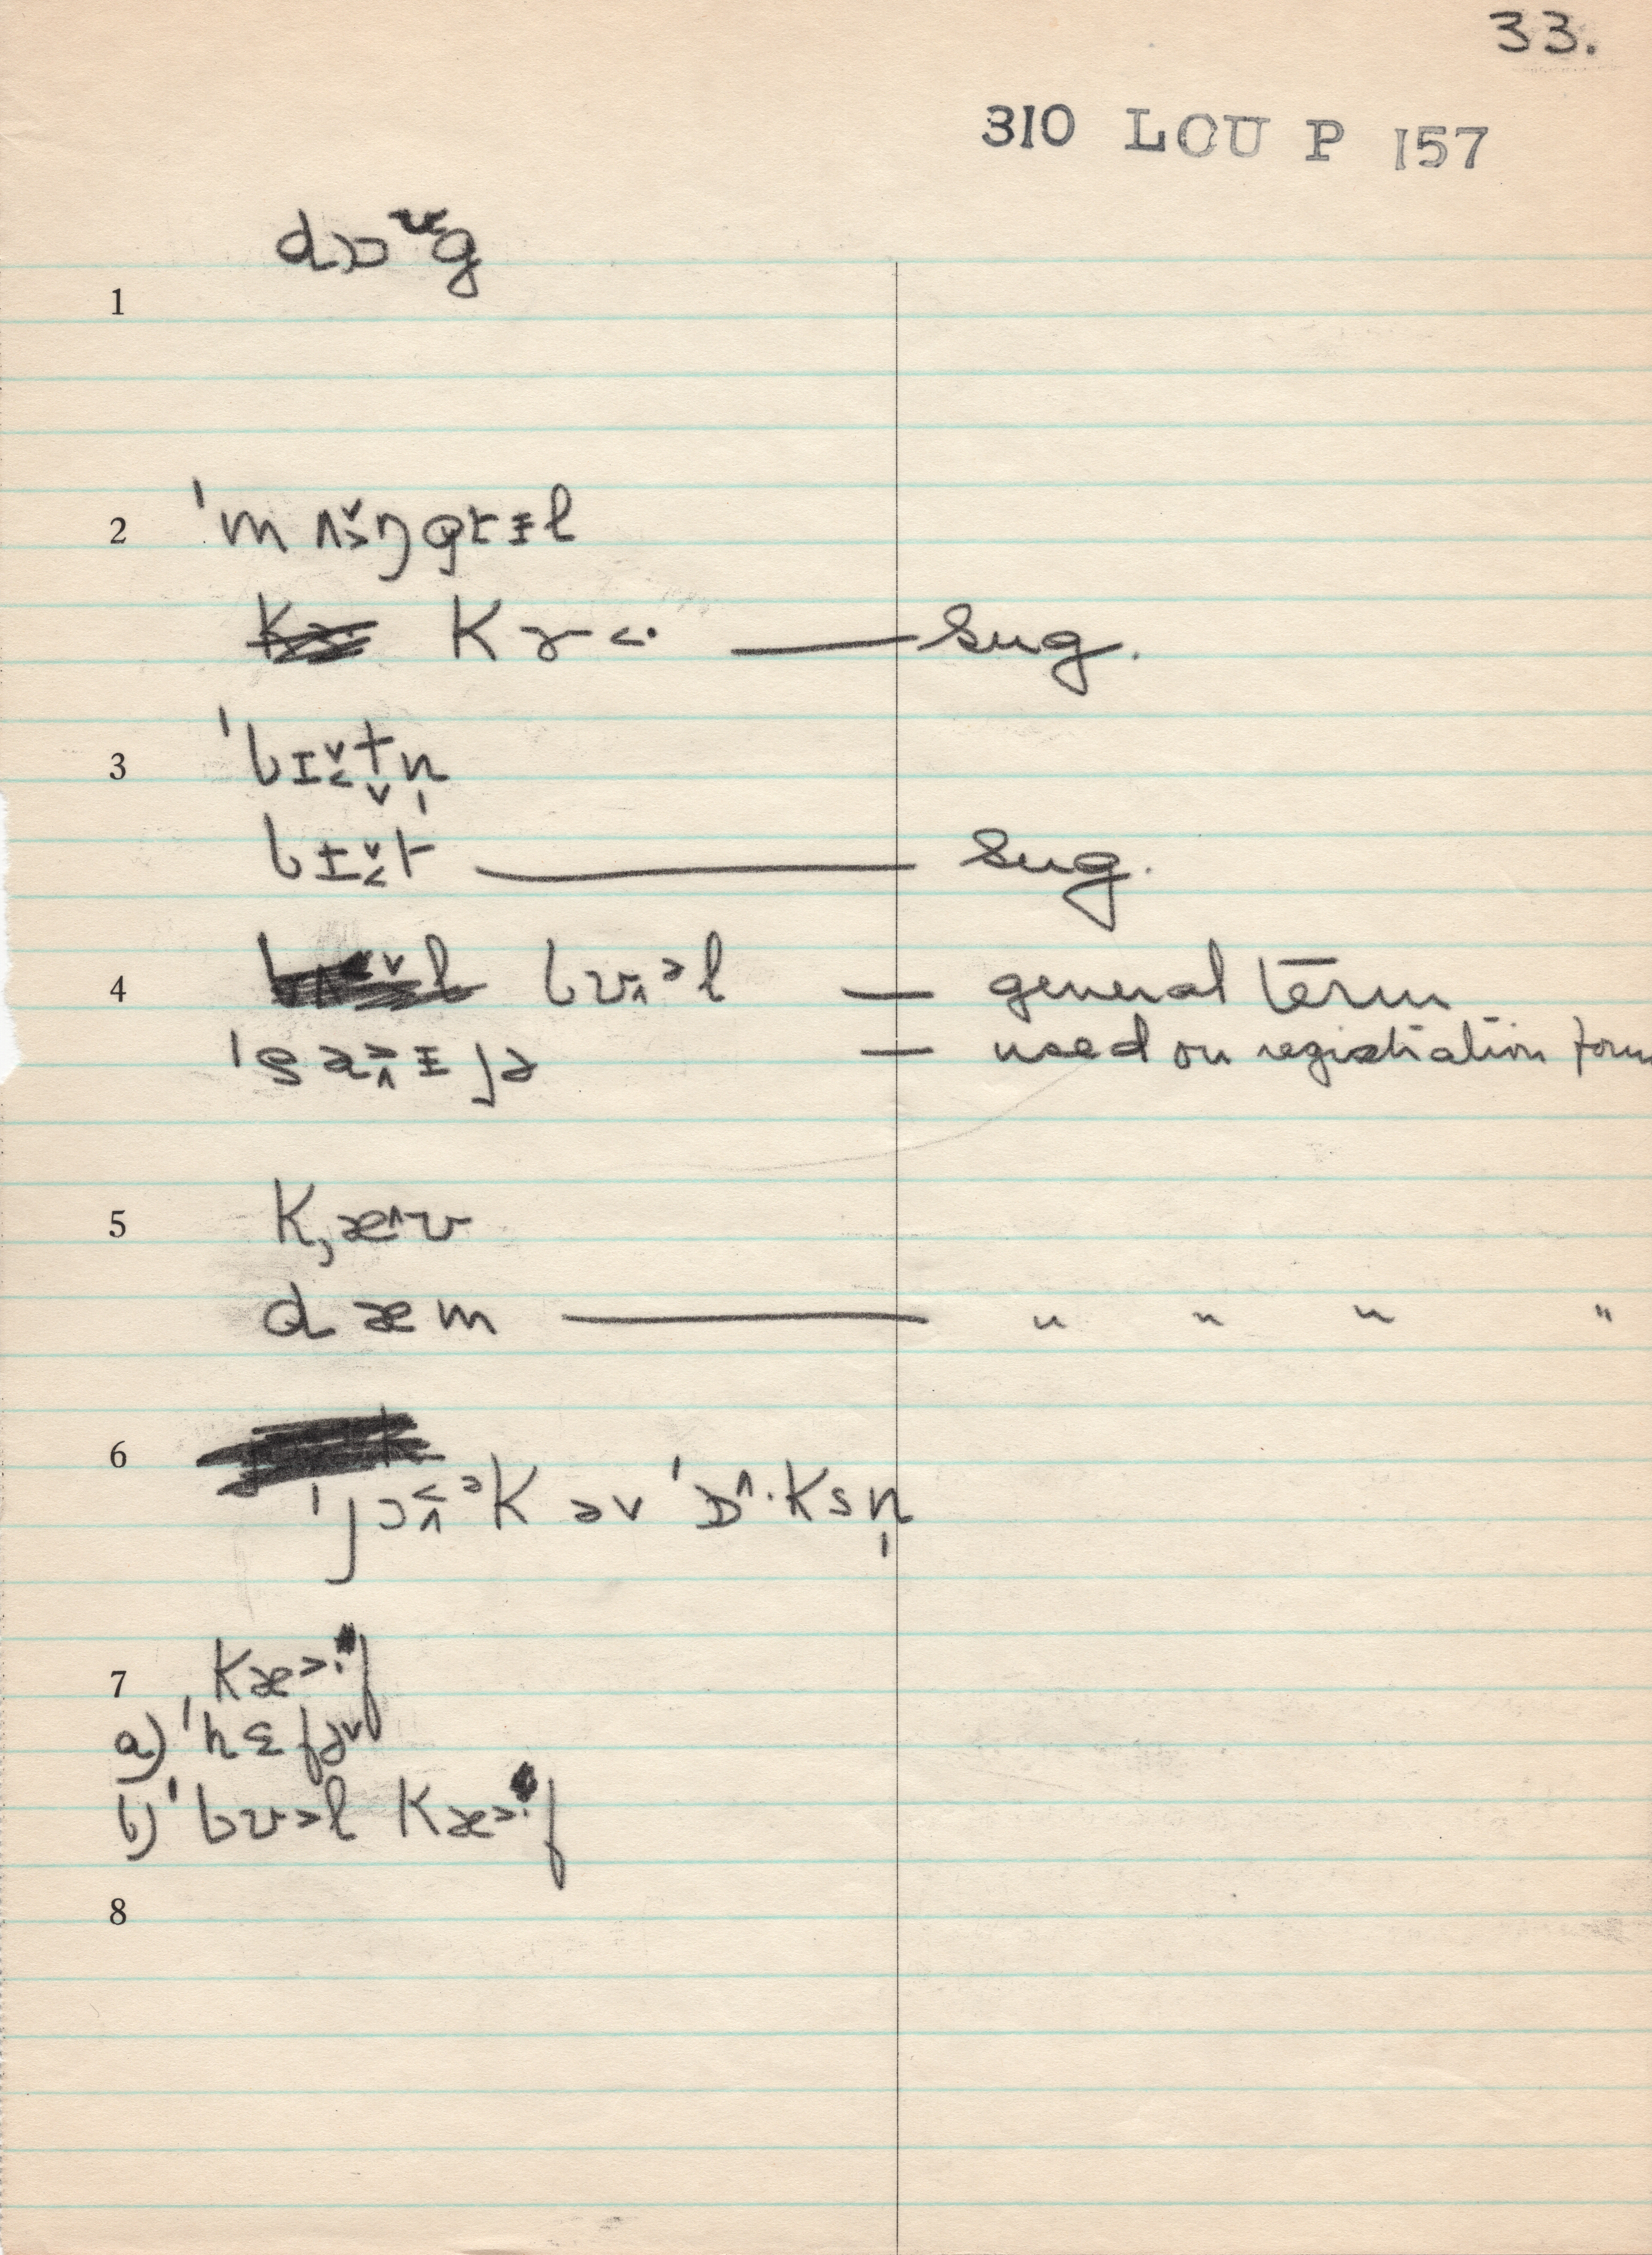 33.
310 LOU P 157
dɔɒᶷg
1
2 ˈmʌ̌ŋgrɪl
Kɚ<· — Sug.
3 ˈbɪtn̩
bɪt — Sug.
4 bʊəl — general term
— used on registration form
5 K,æʊ
dæm — " " " "
6 ˈjɔəK əv ˈɒ^·Ksn̩
7 Kæ>·f
a) ˈhɛfɚ
b) ˈbʊ>l Kæ>·f
8